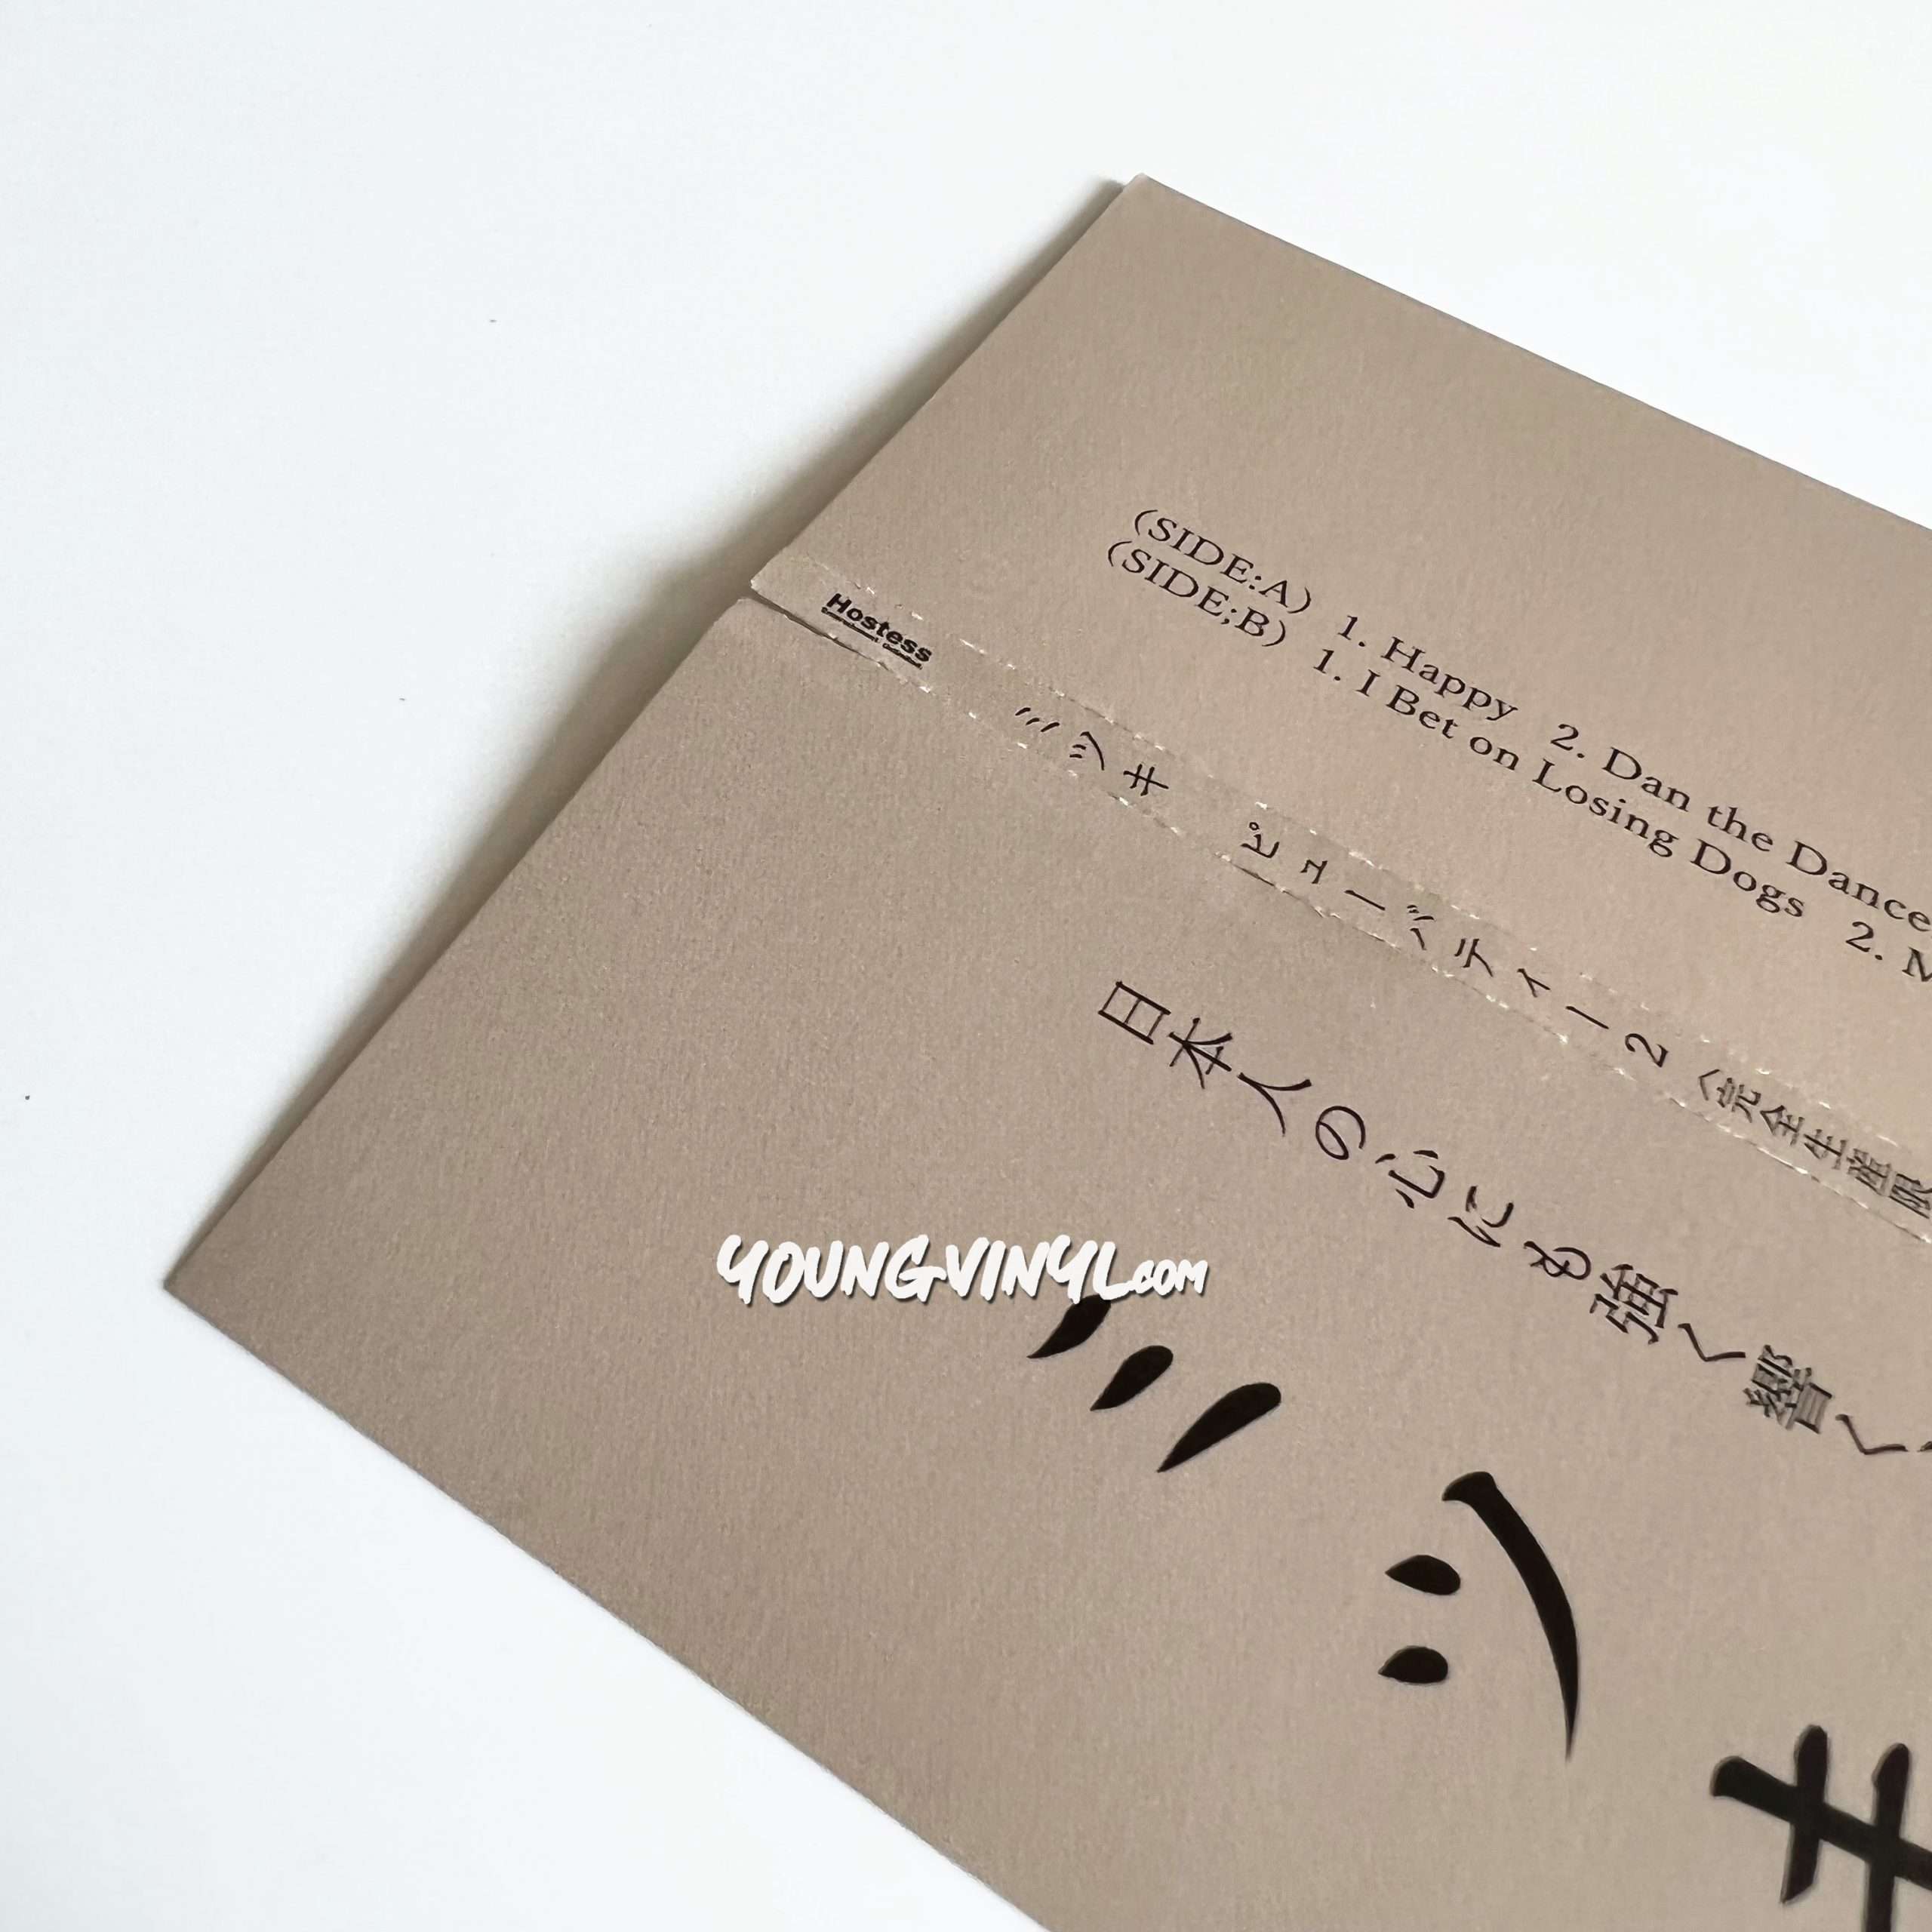 (SIDE:A) 1. Happy 2. Dan the Dance
(SIDE;B) 1. I Bet on Losing Dogs 2. M
Hostess
ミツキ ピューバティー2〈完全生産限
日本人の心にも強く響く、
YOUNGVINYL.com
ミツキ